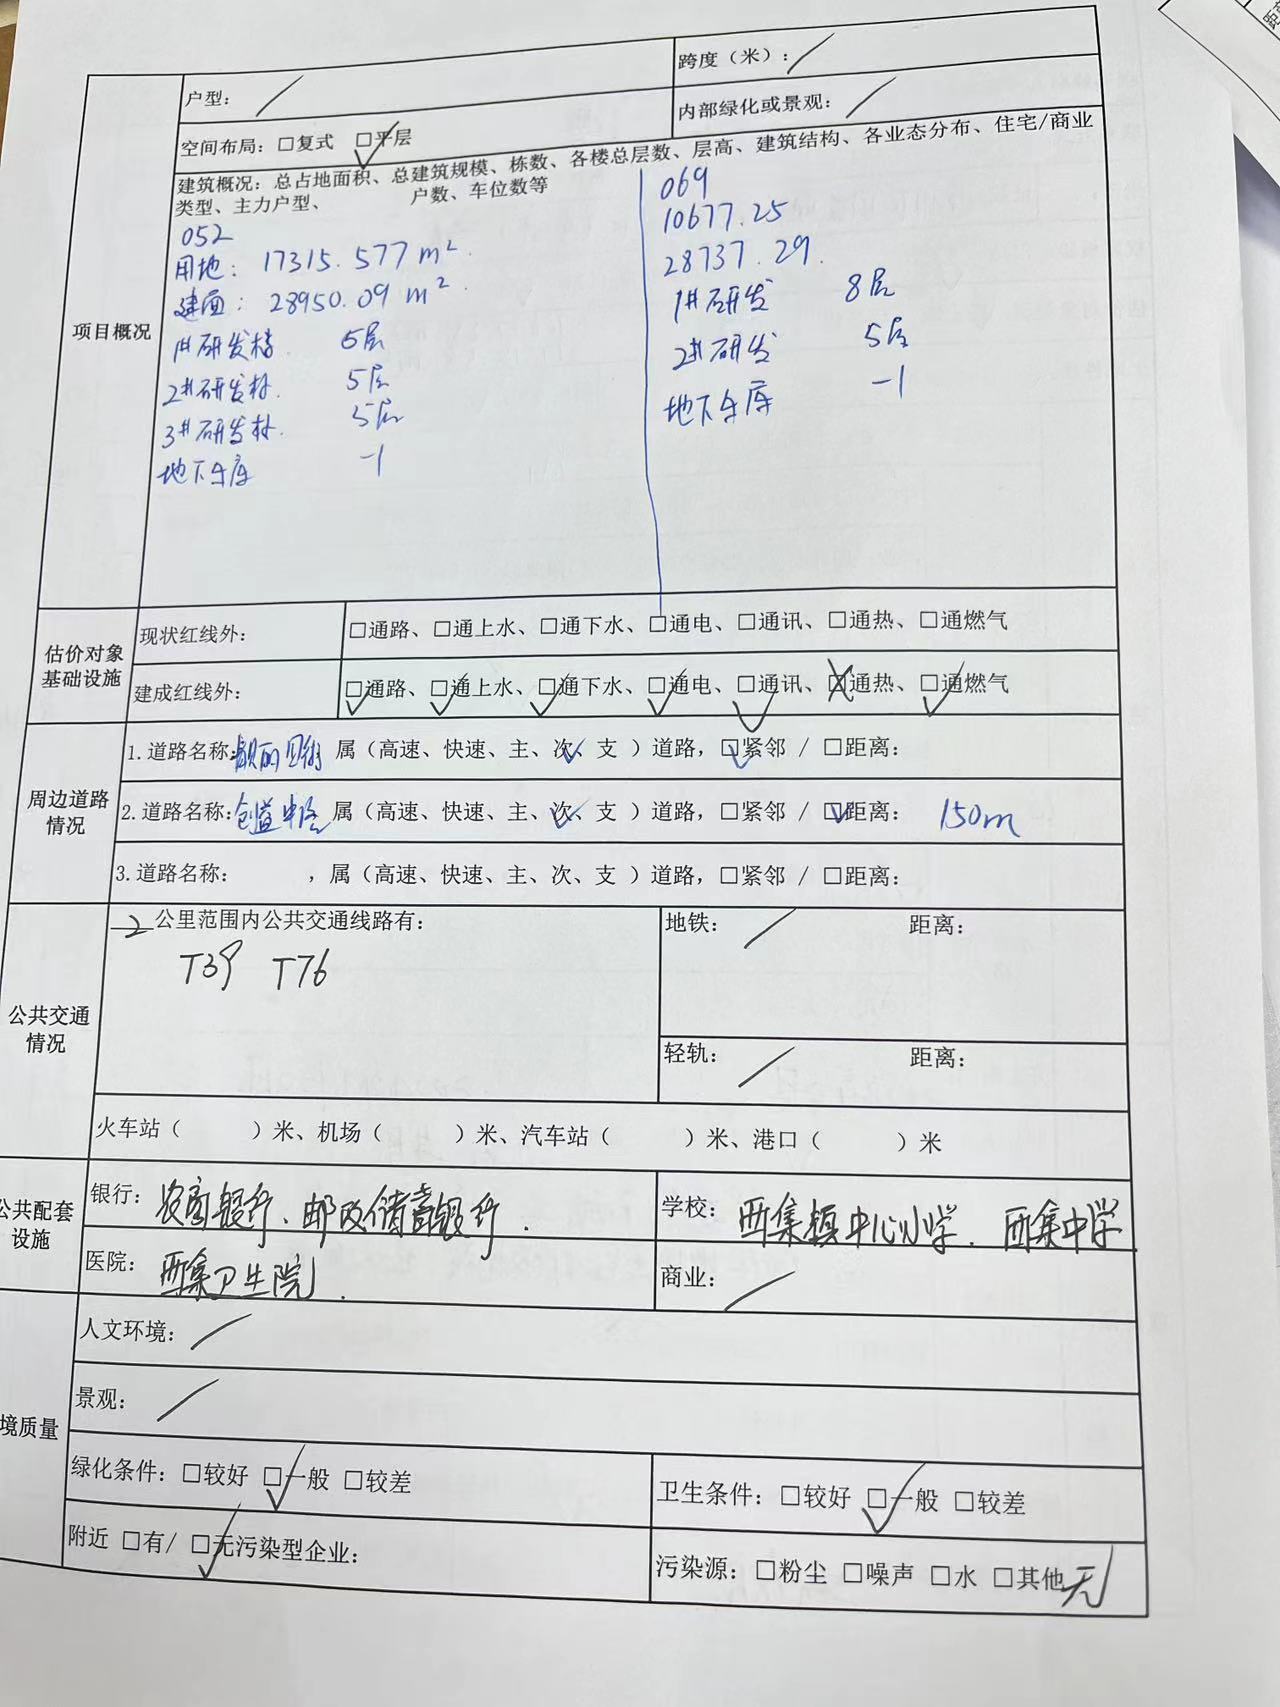 户型： /
跨度（米）： /
空间布局：□复式 ☑平层
内部绿化或景观： /
项目概况
建筑概况：总占地面积、总建筑规模、栋数、各楼总层数、层高、建筑结构、各业态分布、住宅/商业
类型、主力户型、 户数、车位数等
052
用地： 17315.577 m²
建面： 28950.09 m²
1#研发楼 5层
2#研发楼 5层
3#研发楼 5层
地下车库 -1
069
10677.25
28737.29
1#研发 8层
2#研发 5层
地下车库 -1
估价对象
基础设施
现状红线外：
□通路、□通上水、□通下水、□通电、□通讯、□通热、□通燃气
建成红线外：
☑通路、☑通上水、☑通下水、☑通电、☑通讯、☒通热、☑通燃气
周边道路
情况
1.道路名称： 属（高速、快速、主、次✓、支 ）道路，☑紧邻 / □距离：
2.道路名称：创益中路 属（高速、快速、主、次✓、支 ）道路，□紧邻 / ☑距离： 150m
3.道路名称： ，属（高速、快速、主、次、支 ）道路，□紧邻 / □距离：
公共交通
情况
2 公里范围内公共交通线路有：
T39 T76
地铁： / 距离：
轻轨： / 距离：
火车站（ ）米、机场（ ）米、汽车站（ ）米、港口（ ）米
公共配套
设施
银行： 农商银行、邮政储蓄银行.
学校： 西集镇中心小学. 西集中学
医院： 西集卫生院.
商业： /
境质量
人文环境： /
景观： /
绿化条件：□较好 ☑一般 □较差
卫生条件：□较好 ☑一般 □较差
附近 □有/ ☑无污染型企业：
污染源：□粉尘 □噪声 □水 □其他 无